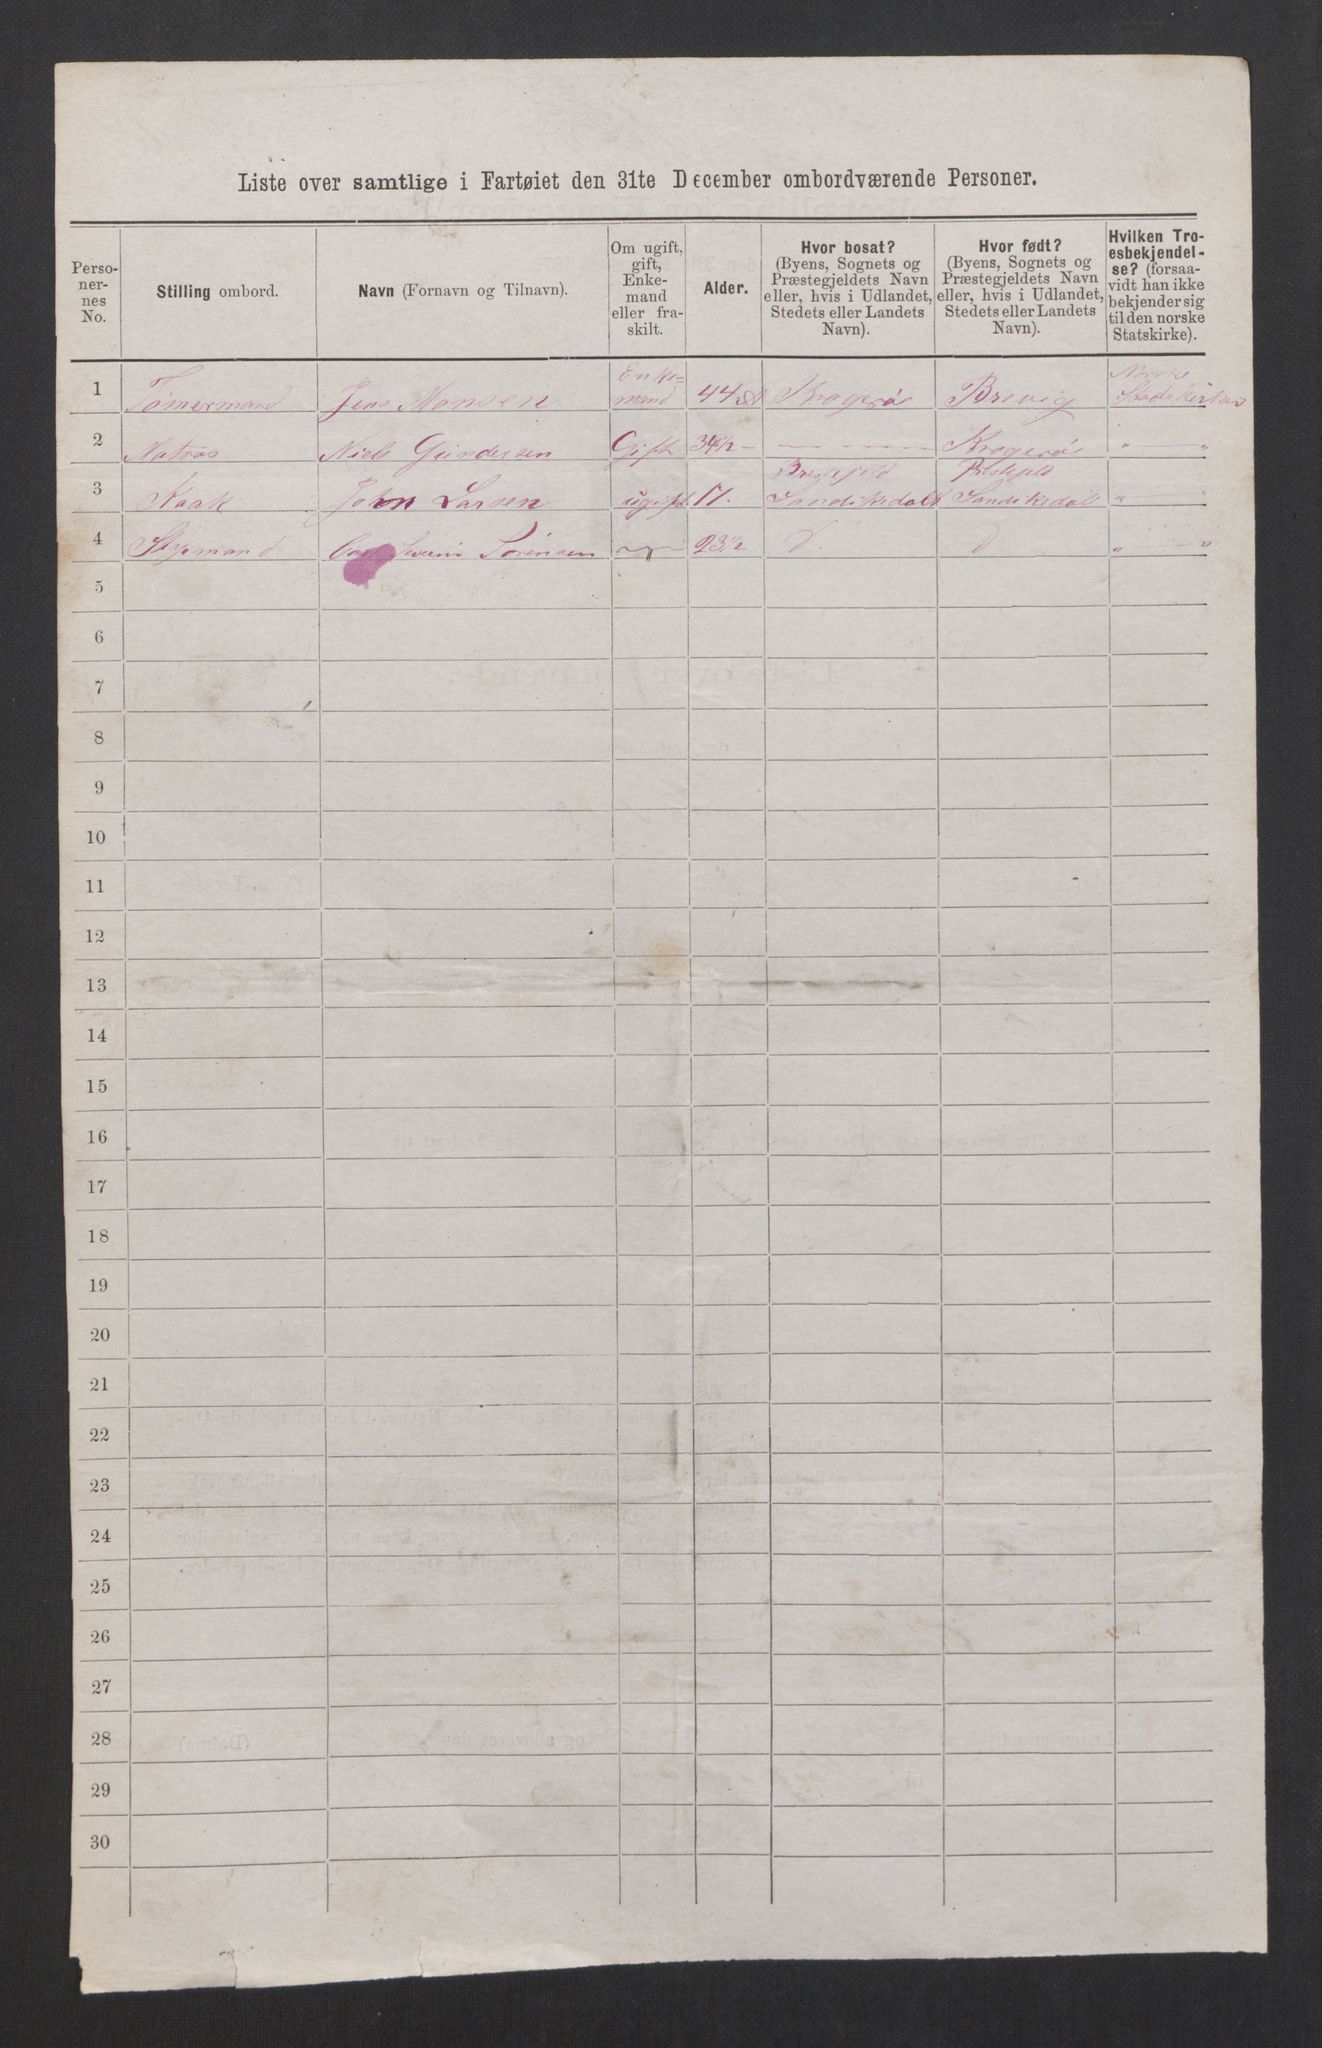 Liste over samtlige i Fartøiet den 31te December ombordværende Personer.
Perso-
ner-
nes
No.
Stilling ombord.
Navn (Fornavn og Tilnavn).
Om ugift,
gift,
Enke-
mand
eller fra-
skilt.
Alder.
Hvor bosat?
(Byens, Sognets og
Præstegjeldets Navn
eller, hvis i Udlandet,
Stedets eller Landets
Navn).
Hvor født?
(Byens, Sognets og
Præstegjeldets Navn
eller, hvis i Udlandet,
Stedets eller Landets
Navn).
Hvilken Tro-
esbekjendel-
se? (forsaa-
vidt han ikke
bekjender sig
til den norske
Statskirke).
1 Tømermand Jens Monsen Enke=
mand 44 Kragerø Brevig Norske
Stadskirken
2 Matros Niels Gundersen Gift 34½ — Kragerø " — "
3 Kaak John Larsen ugift 17.
Sandikedal Sandikedal " — "
4 Styrmand Sørensen 23½ D D " — "
5
6
7
8
9
10
11
12
13
14
15
16
17
18
19
20
21
22
23
24
25
26
27
28
29
30